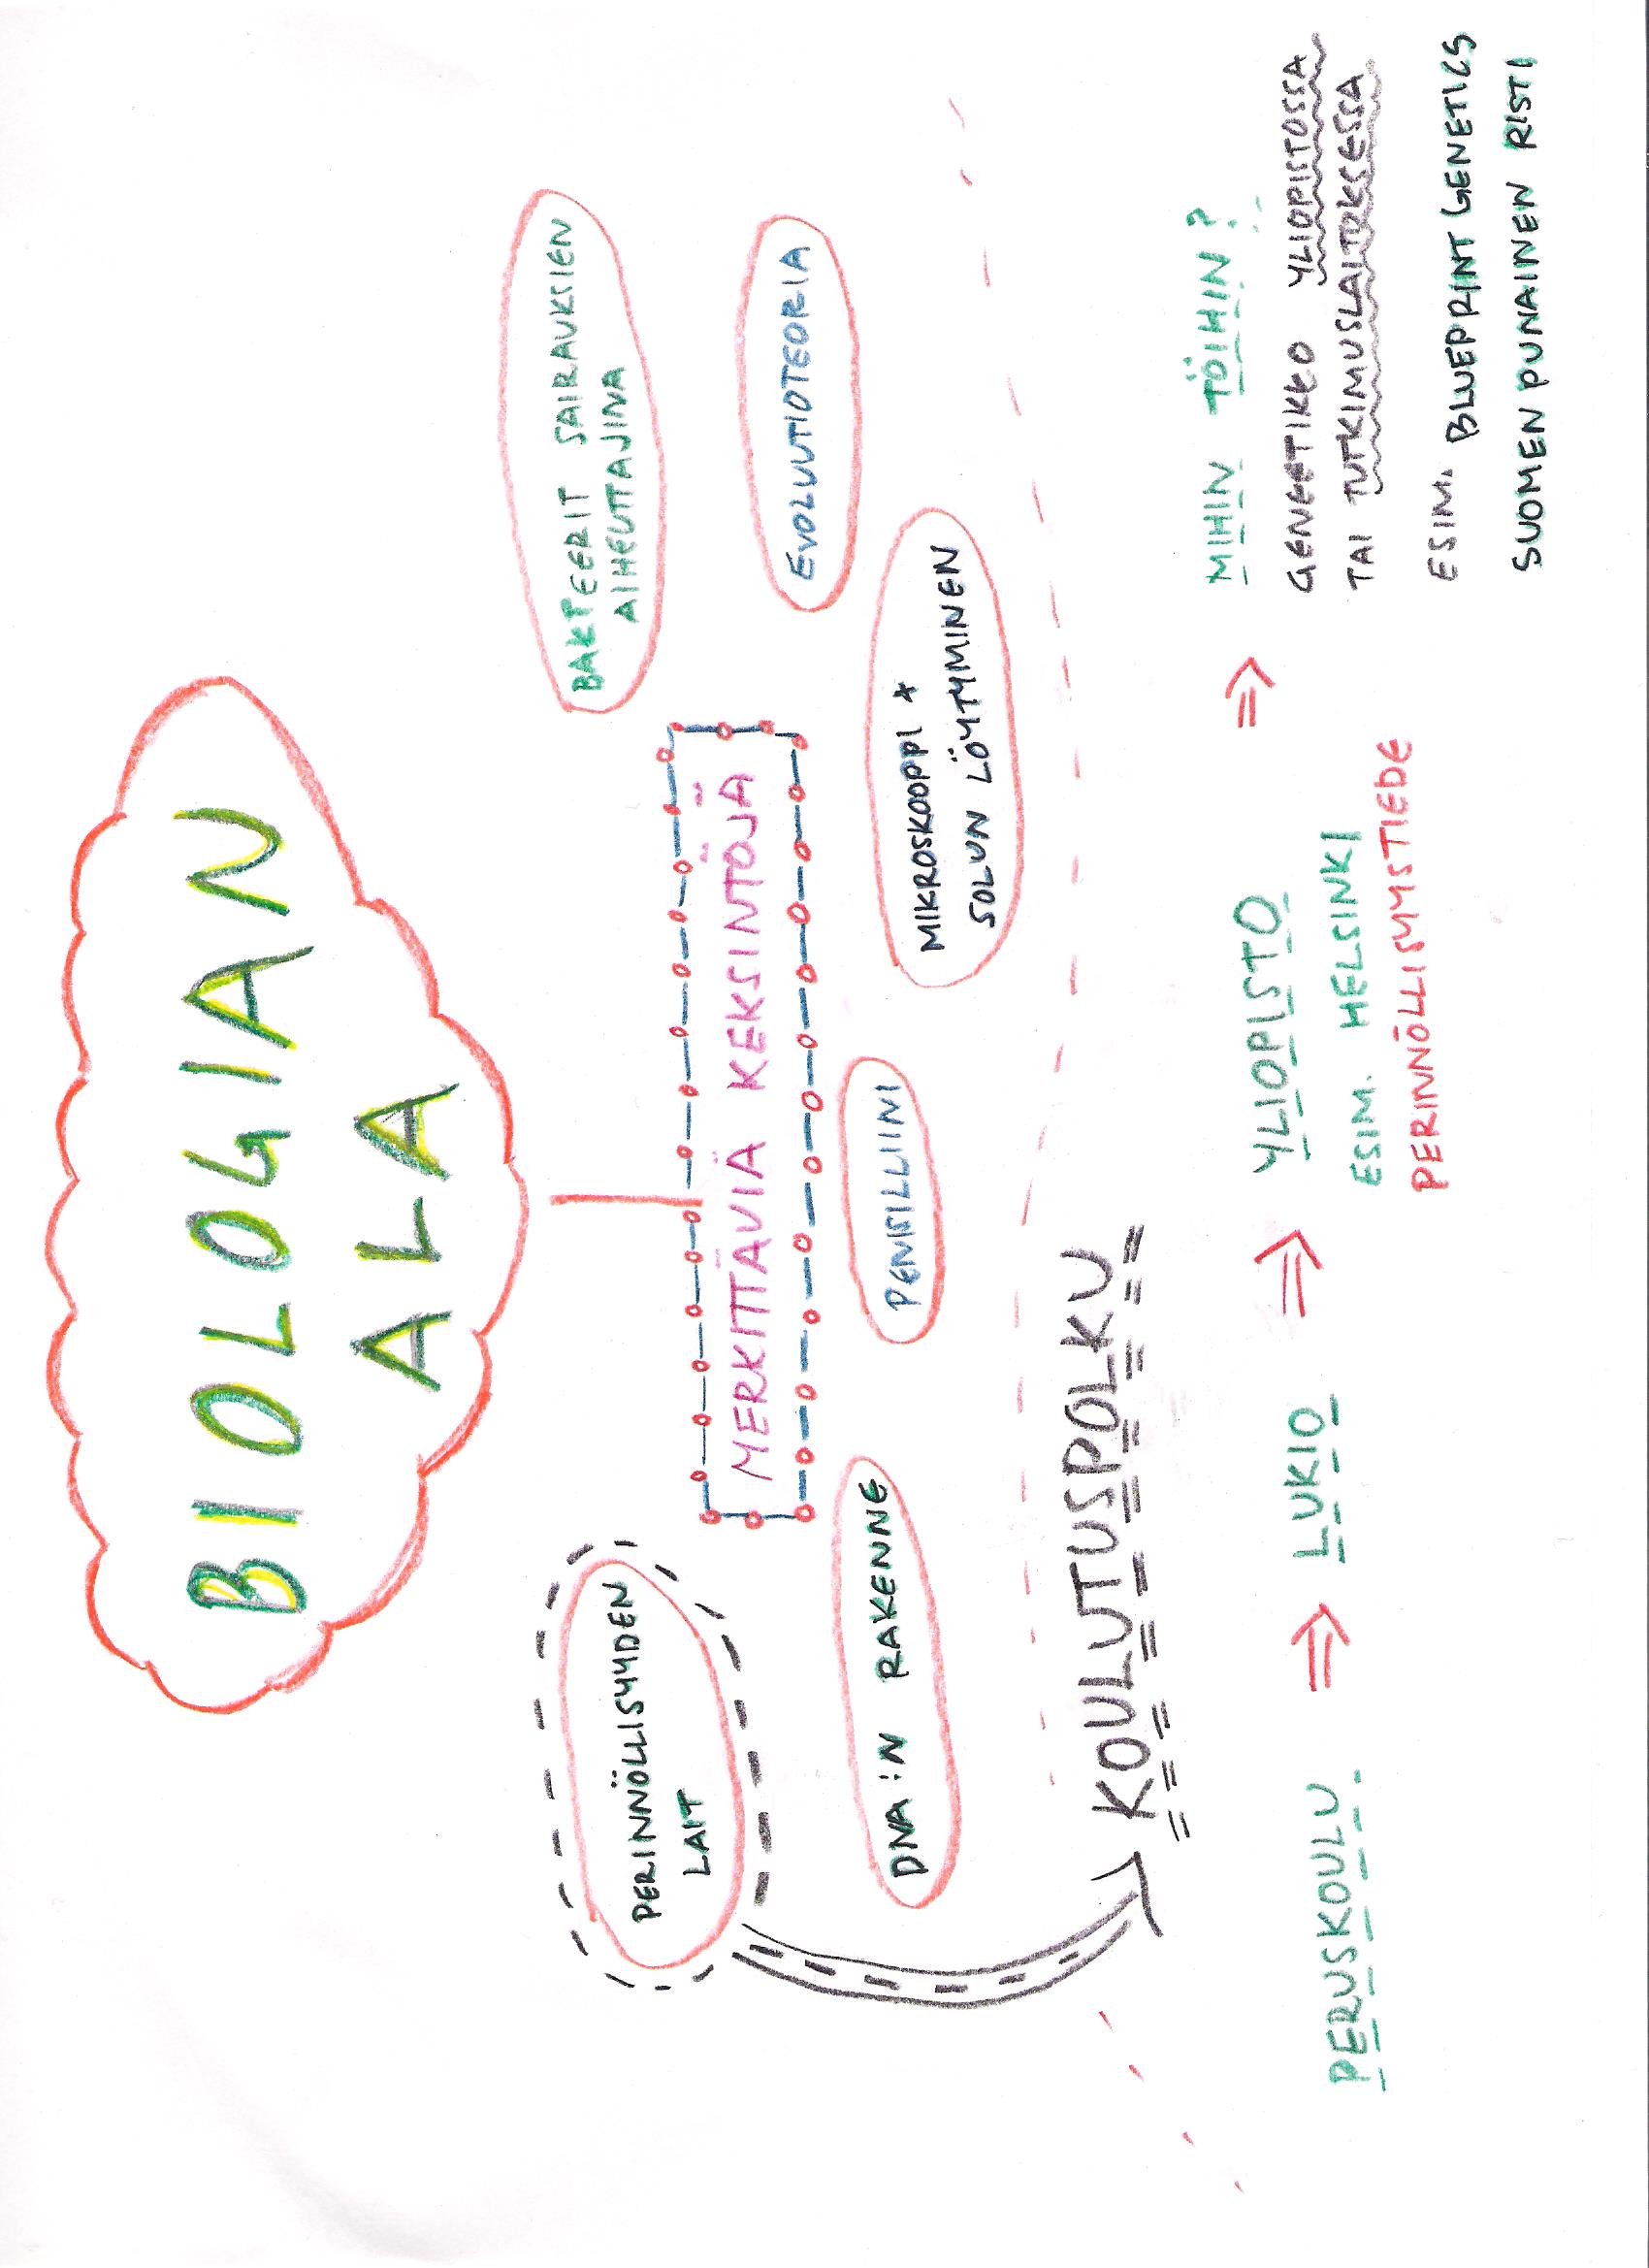 BIOLOGIAN
ALA
MERKITTÄVIÄ KEKSINTÖJÄ
PERINNÖLLISYYDEN
LAIT
DNA:N RAKENNE
PENISILLIINI
MIKROSKOOPPI +
SOLUN LÖYTYMINEN
EVOLUUTIOTEORIA
BAKTEERIT SAIRAUKSIEN
AIHEUTTAJINA
KOULUTUSPOLKU
PERUSKOULU
LUKIO
YLIOPISTO
ESIM. HELSINKI
PERINNÖLLISYYSTIEDE
MIHIN TÖIHIN?
GENEETIKKO YLIOPISTOSSA
TAI TUTKIMUSLAITOKSESSA
ESIM. BLUEPRINT GENETICS
SUOMEN PUNAINEN RISTI